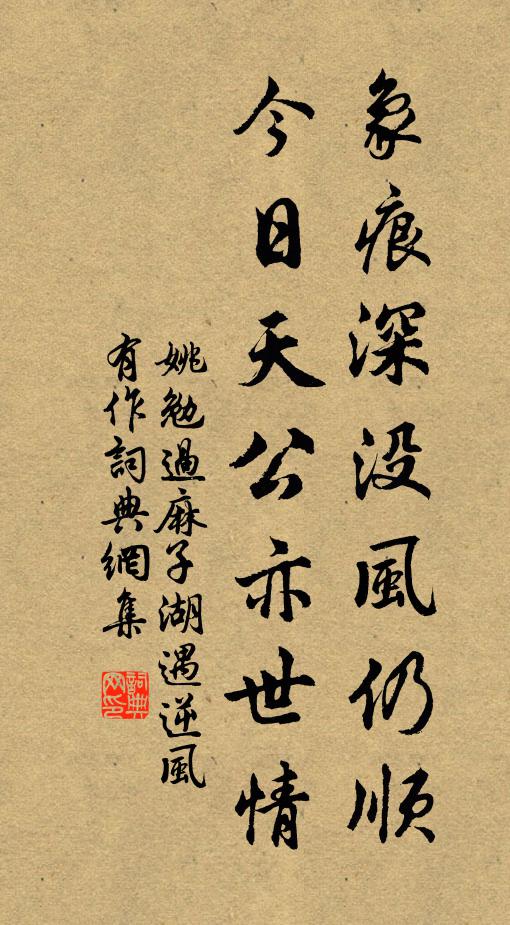 象痕深没風仍順
今日天公亦世情
姚勉過麻子湖遇逆風
有作詞典網集
詞典网印